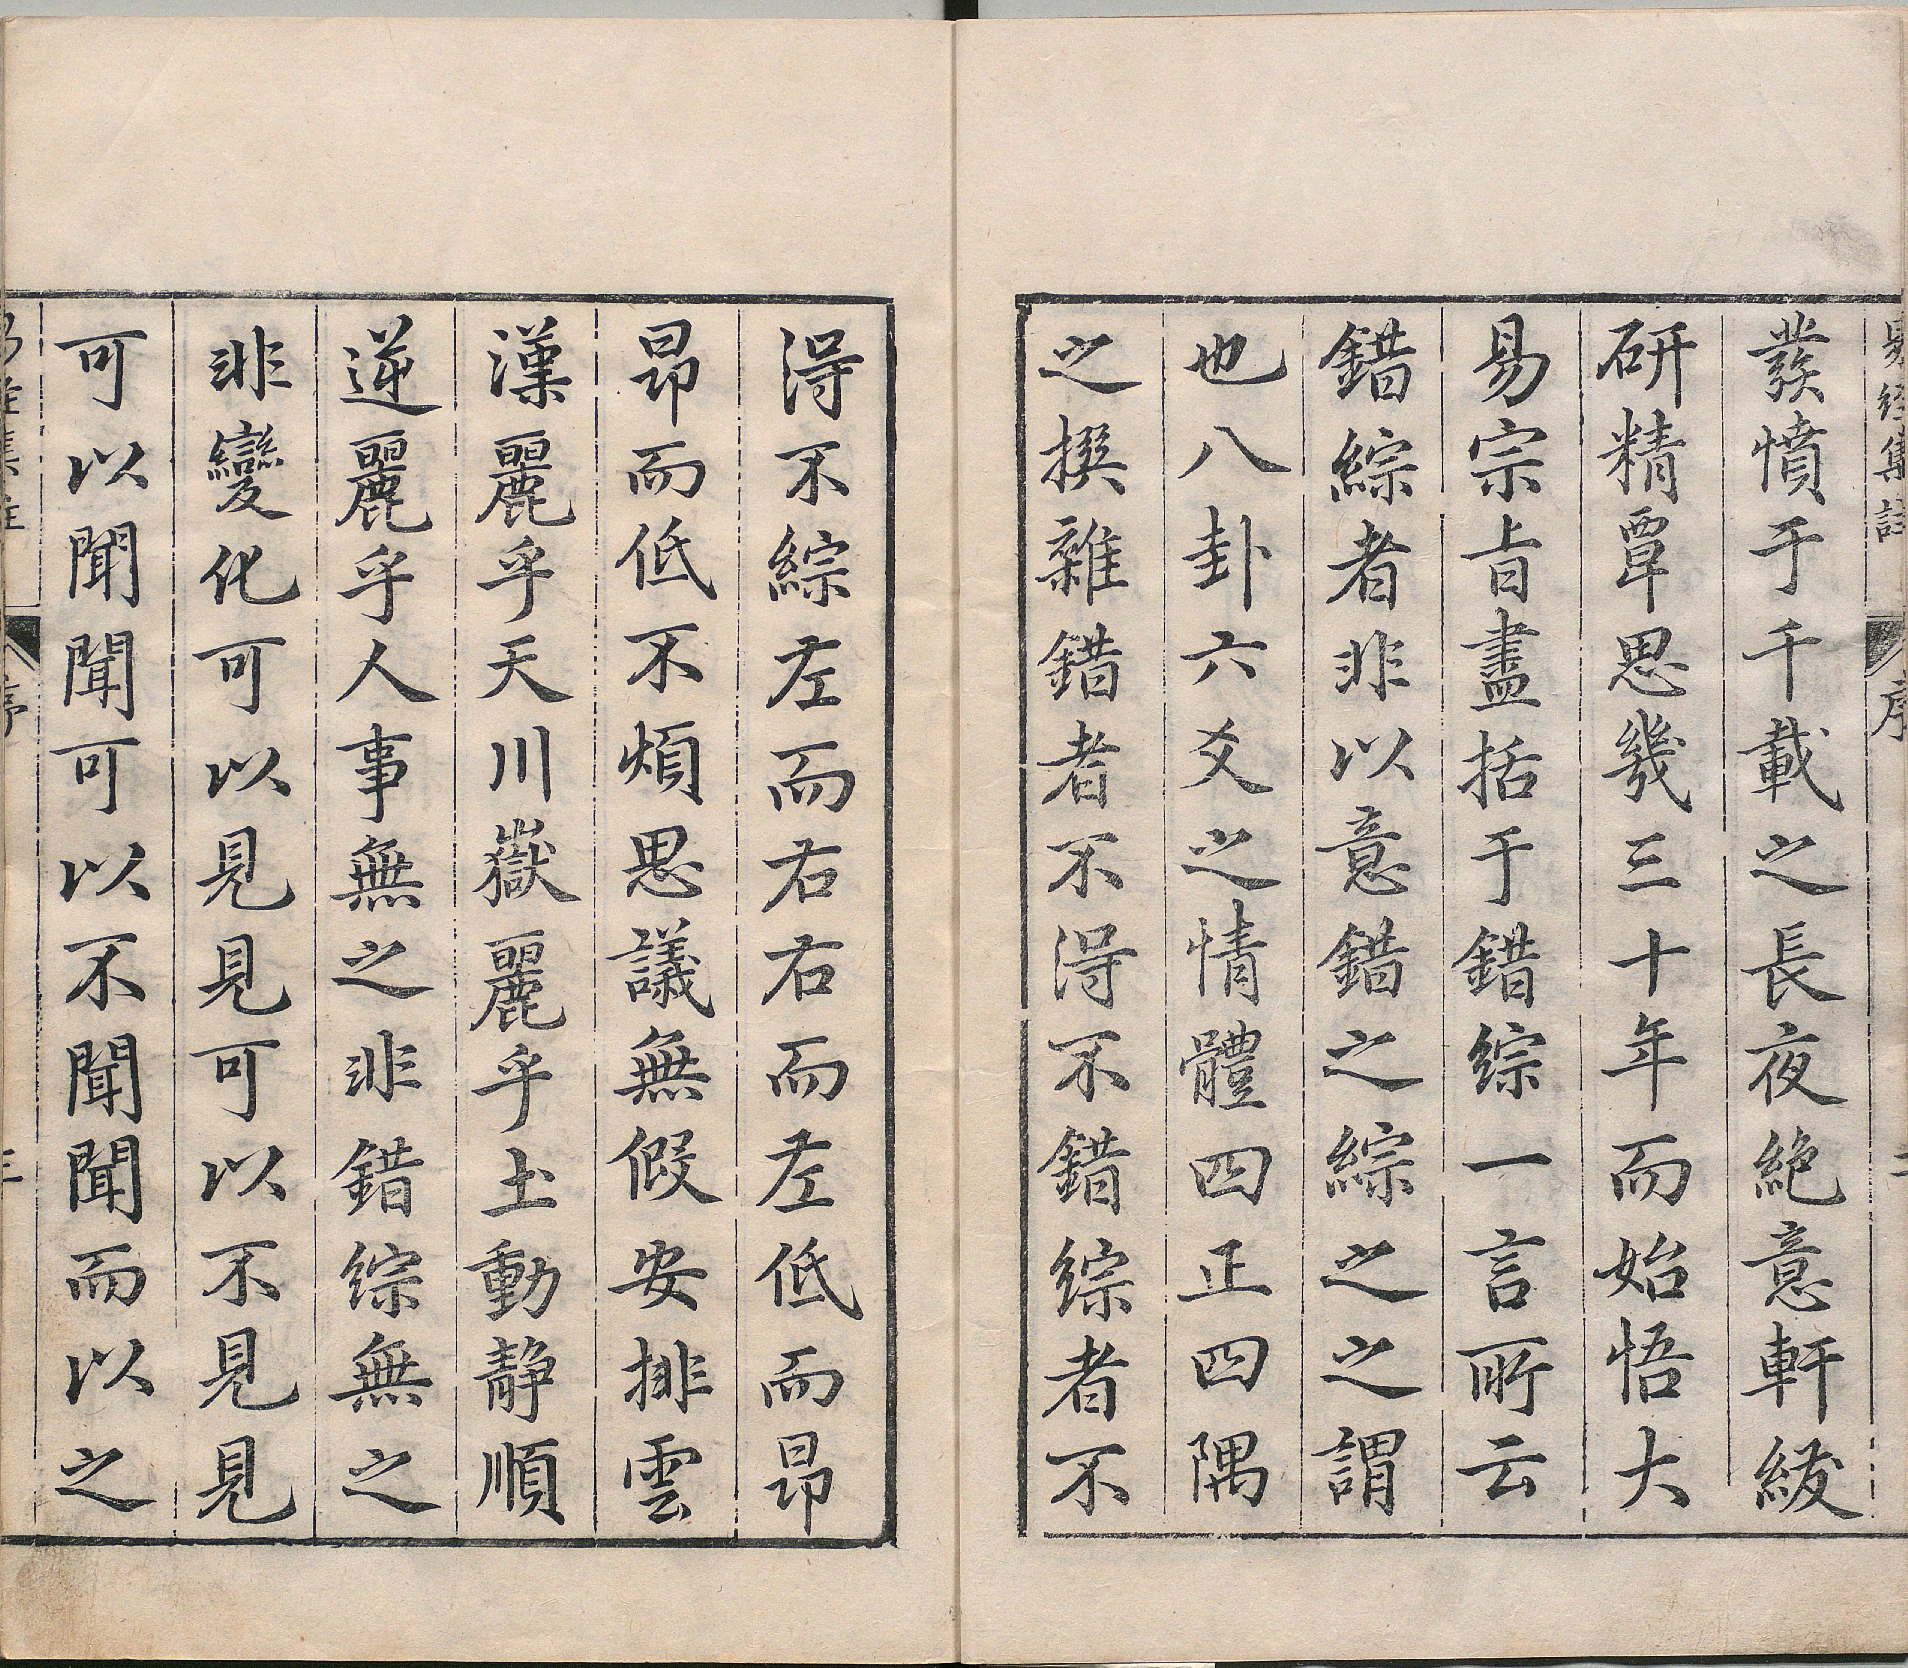 易經集註 序
發憤于千載之長夜絶意軒紱
研精覃思幾三十年而始悟大
易宗旨盡括于錯綜一言所云
錯綜者非以意錯之綜之之謂
也八卦六爻之情體四正四隅
之撰雜錯者不淂不錯綜者不
淂不綜左而右右而左低而昂
昂而低不煩思議無假安排雲
漢麗乎天川嶽麗乎土動静順
逆麗乎人事無之非錯綜無之
非變化可以見見可以不見見
可以聞聞可以不聞聞而以之